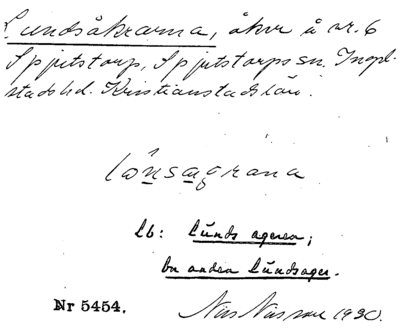 Lundsåkrarna, åkrar å nr. 6
Spjutstorp, Spjutstorps sn. Ingel-
stads hd. Kristianstads län.
lônsagrana
Lb: Lūnds agerea;
en anden Lūndsager.
Nr 5454.
Nils Nilsson 1930.